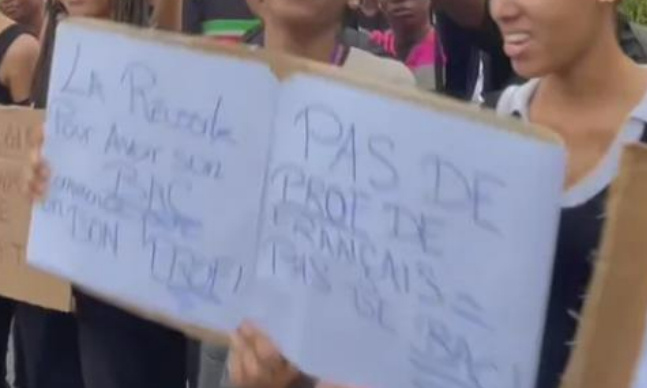 LA Réussite
Pour Avoir son
BAC
TON PROF!
PAS DE
PROF DE
FRANÇAIS =
PAS DE BAC!